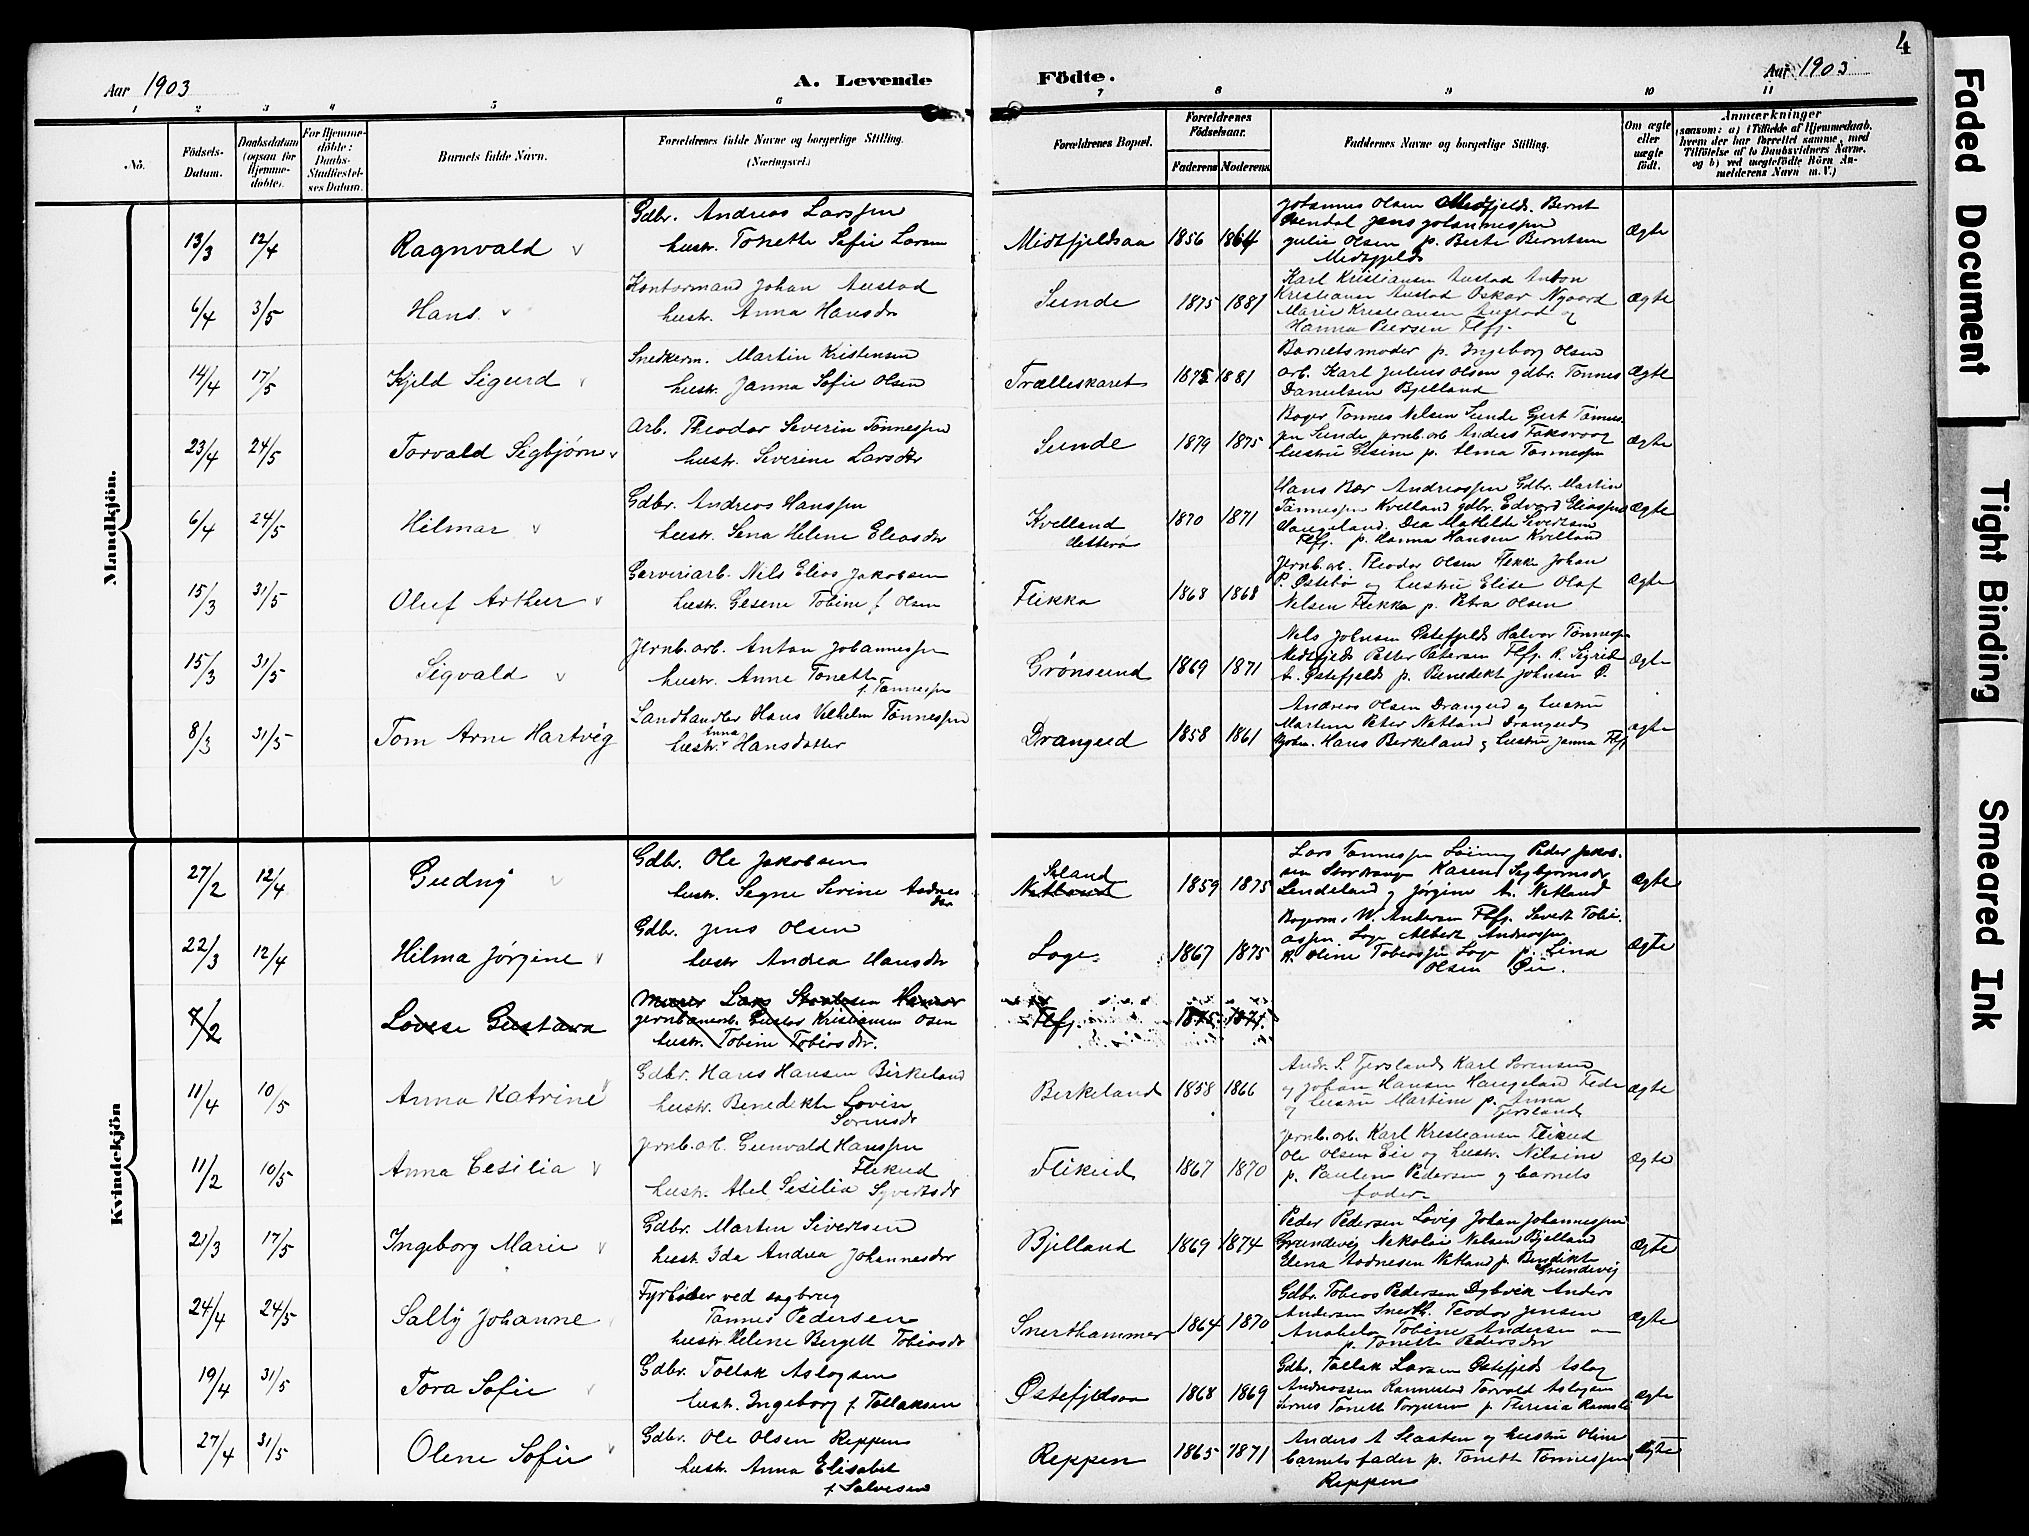 4
Aar 1903
A. Levende
Födte.
Aar 1903
1 2 3 4 5 6 7 8 9 10 11
No.
Födsels-
Datum.
Daabsdatum
(ogsaa for
Hjemme-
döbte).
For Hjemme-
döbte:
Daabs-
Stadfæstel-
ses Datum.
Barnets fulde Navn.
Forældrenes fulde Navne og borgerlige Stilling.
(Næringsvei.)
Forældrenes Bopæl.
Forældrenes
Födselsaar.
Faderens
Moderens
Faddernes Navne og borgerlige Stilling.
Om ægte
eller
uægte
födt.
Anmærkninger
(saasom: a) i Tilfælde af Hjemmedaab,
hvem der har forrettet samme, med
Tilföielse af to Daabsvidners Navne,
og b) ved uægtefödte Börn An-
melderens Navn m. V.)
Mandkjön.
13/3 12/4 Ragnvald
Gdbr. Andreas Larssen
hustr. Tonette Sofie Larsen
Midtfjeldsaa 1856 1864
Johannes Olsen Midtfjeld. Bernt
Jens Johannessen
Julie Olsen p. Berte Berntsen
Midtfjeld
Ægte
6/4 3/5 Hans
Kontormand Johan Austad
hustr. Anna Hansdr
Sunde 1875 1881
Karl Kristiansen Austad Anton
Kristiansen Austad Oskar Nygaard
Marie Kristiansen Austad og
Hanna Petersen Flfj.
Ægte
14/4 17/5 Kjeld Sigurd
Snedkerm. Martin Kristensen
hustr. Janna Sofie Olsen
Trælleskaret 1875 1881
Barnetsmoder p. Ingeborg Olsen
arb. Karl Julius Olsen gdbr. Tønnes
Danielsen Bjelland
Ægte
23/4 24/5 Torvald Sigbjørn
Arb. Theodor Severin Tønnessen
hustr. Severine Larsdtr
Sunde 1879 1875
Bager Tønnes Nilsen Sunde Gert Tønnes-
sen Sunde jernb.arb. Anders Faksvaag
hustru Gesine p. Alma Tønnessen
Ægte
6/4 24/5 Hilmar
Gdbr. Andreas Hanssen
hustr. Sena Helene Eliasdr
Kvelland
Hitterø
1870 1871
Hans Bær Andreassen Gdbr. Martin
Tønnessen Kvelland gdbr. Edvard Eliassen
Haugeland. Dea Mathilde Sivertsen
Flfj. p. Hanna Hansen Kvelland
Ægte
15/3 31/5 Oluf Arthur
Garveriarb. Nils Elias Jakobsen
hustr. Gesene Tobine f. Olsen
Flikka 1868 1868
Jernb.arb. Theodor Olsen Flikke Johan
P. Østebø og hustru Elise Olaf
Nilsen Flikka p. Petra Olsen
Ægte
15/3 31/5 Sigvald
Jernb.arb. Anton Johannessen
hustr. Anne Tonette
f. Tønnessen
Grønsund 1869 1871
Nils Johnsen Østefjeld Halvor Tønnessen
Midtfjeld Petter Petersen Flfj. R. Sigrid
A. Østefjeld p. Benedikt Johnsen Ø.
Ægte
8/3 31/5 Tom Arne Hartvig
Landhandler Hans Vilhelm Tønnessen
hustr. Anna Hansdatter
Drangeid 1858 1861
Andreas Olsen Drangeid og hustru
Martine Peter Netland Drangeid
Hans Birkeland og hustru Janna Flfj.
Ægte
Kvindekjön
27/2 12/4 Gudny
Gdbr. Ole Jakobsen
hustr. Segne Serine Aadnes
dtr
Aaland
Netland
1859 1875
Lars Tønnessen Peder Jakob-
sen Stordrange Karen Sigbjørnsdr
Lindeland og Jørgine A. Netland
Ægte
22/3 12/4 Hilma Jørgine
Gdbr. Jens Olsen
hustr. Andrea Hansdr
Loge 1867 1875
Bagerm. W. Andersen Flfj. Sivert Tobi-
assen Loge Albert Andreassen
A. Oline Tobiassen Loge p. Lina
Olsen Øie.
Ægte
7/2 Lovise Gustava
Murer Lars
Jernbanearb. Gustav Kristiansen Osen
hustr. Tobine Tobiasdr.
Flfj. 1875 1871.
11/4 10/5 Anna Katrine
Gdbr. Hans Hansen Birkeland
hustr. Benedikte Lovise
Sørensdr
Birkeland 1858 1866
Andr. S. Tjersland Karl Sørensen
og Johan Hansen Haugeland Fede
og hustru Martine p. Anna
Tjersland
Ægte
11/2 10/5 Anna Cesilia
Jernb.arb. Gunvald Hanssen
Flikeid
hustr. Abel Sesilia Syvertsdr
Flikeid 1867 1870
Jernb.arb. Karl Kristiansen Flikeid
Ole Olsen Eie og hustr. Nilsine
p. Pauline Pedersen og barnets
fader
Ægte
21/3 17/5 Ingeborg Marie
Gdbr. Marten Sivertsen
hustr Ida Andrea Johannesdr
Bjelland 1869 1874
Peder Pedersen Lovig Johan Johannessen
Grundevig Nikolai Nilsen Bjelland
Elena Aadnesen Netland p. Bendikte
Grundevig
Ægte
24/4 24/5 Sally Johanne
Fyrbøter ved sagbrug
Tønnes Pedersen
hustr Helene Bergitte Tobiasdr
Snerthammer 1864 1870
Gdbr. Tobias Pedersen Dybvik Anders
Andersen Snerth. Teodor Jensen
Anabeløs Tobine Andersen
p. Tonette Pedersdr
Ægte
19/4 31/5 Tora Sofie
Gdbr. Tollak Aslagsen
hustr. Ingeborg f. Tollaksen
Østefjeldsaa 1868 1869
Gdbr. Tollak Larsen Østefjeld Aslag
Andreassen Ramnestad Torvald Aslagsen
Sirnes Tonette Torgersen p. Theresia
Ægte
27/4 31/5 Olene Sofie
Gdbr. Ole Olsen Reppen
hustr. Anna Elisabet
f. Salvesen
Reppen 1865 1871
Anders A Slaaten og hustru Oline
barnets fader p. Tonette Tønnessen
Reppen
Ægte
Faded Document
Tight Binding
Smeared Ink